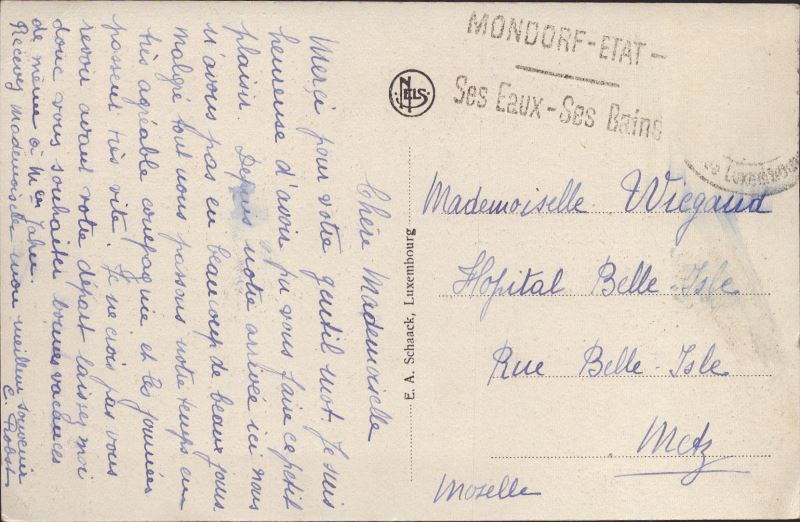 Chère Mademoiselle
Merci pour votre gentil mot. Je suis
heureuse d'avoir pu vous faire ce petit
plaisir. Depuis notre arrivée ici nous
n'avons pas eu beaucoup de beaux jours.
Malgré tout nous passons notre temps en
très agréable compagnie et les journées
passent très vite. Je ne crois pas vous
revoir avant votre départ laissez moi
donc vous souhaiter bonnes vacances
de même à Mer
Recevez Mademoiselle mon meilleur souvenir
C. Probst
NELS
E. A. Schaack, Luxembourg
MONDORF-ETAT-
Ses Eaux-Ses Bains
de Luxembourg
Mademoiselle Wiegand
Hopital Belle-Isle
Rue Belle-Isle
Metz
Moselle